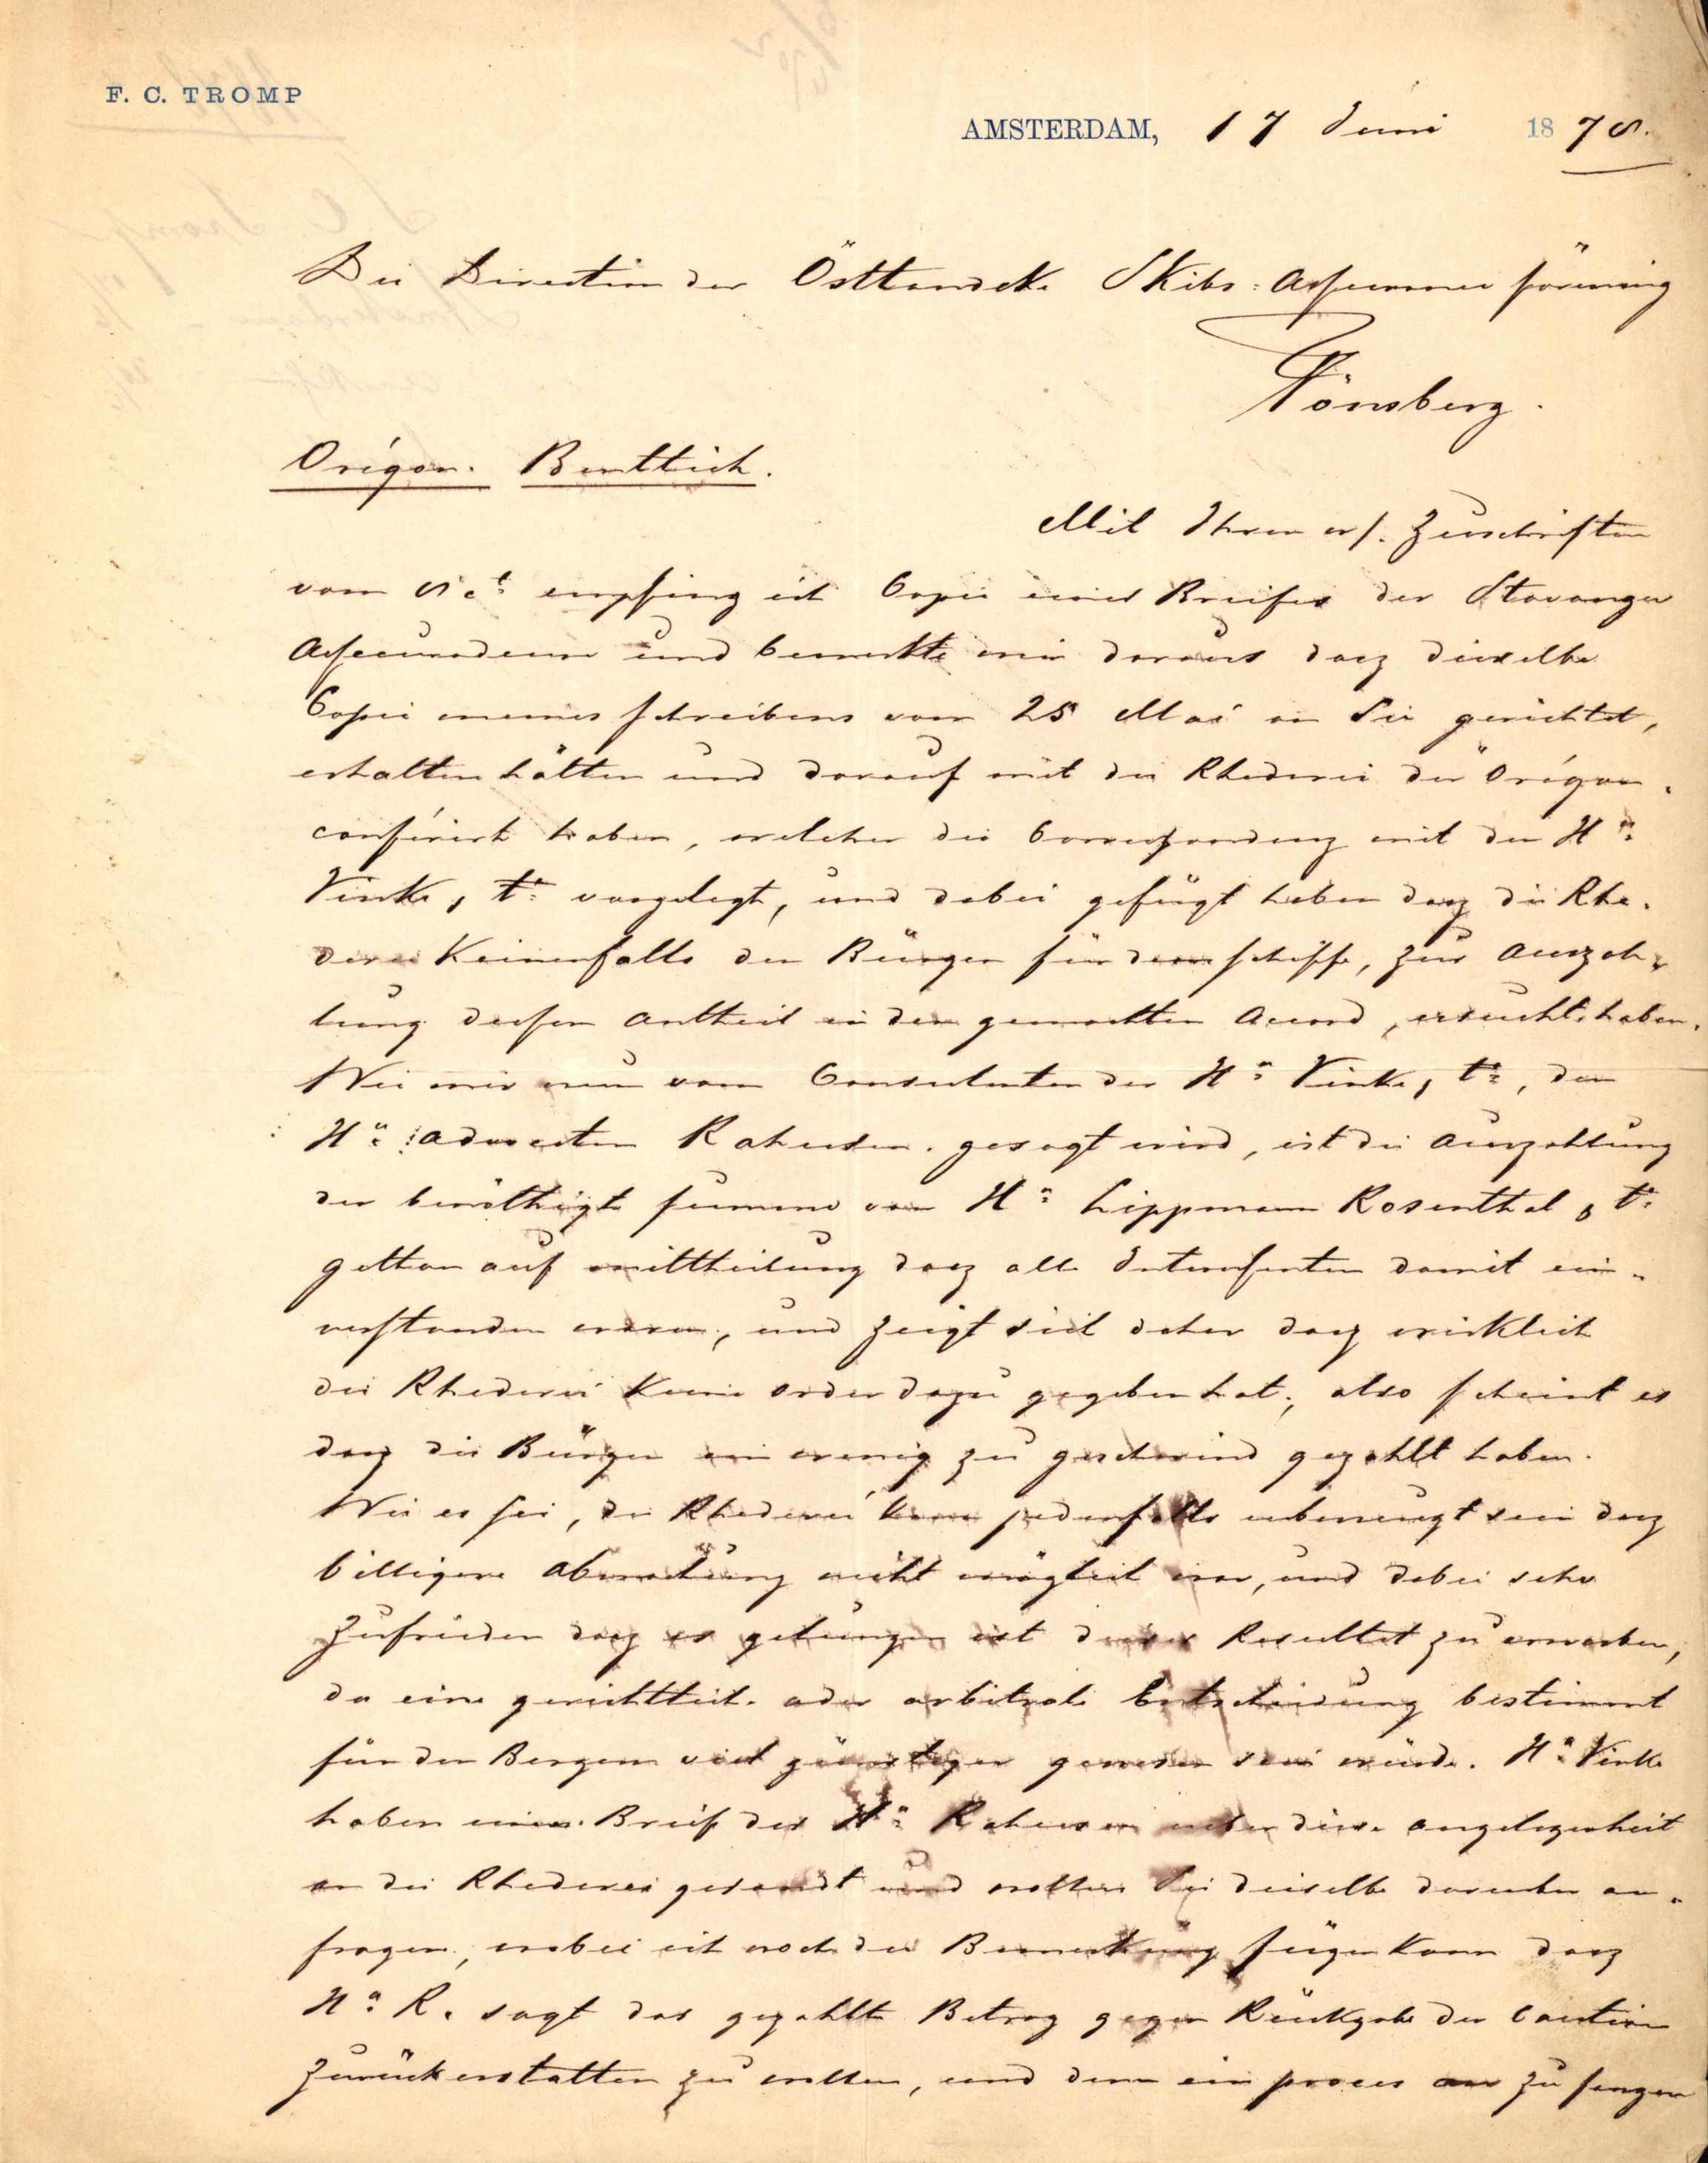 F. C. TROMP
AMSTERDAM, 17 Juni 1878.
Die Direction der Östlandske Skibs-Assurance förening
Tönsberg.
Origon. Bentlich.
Mit Ihren Zuschriften
vom empfing ich Copie eines Briefes der Stavanger
Assecuradeure und bemerkte mir daraus dasz dieselbe
Copie meines schreibens vom 25 Mai an Sie gerichtet,
erhalten hätten und darauf mit die Rhederei der Origon
conferirt haben, welcher die Correspondenz mit den Hn
Vinke & Co vorgelegt, und dabei gefügt haben dasz die Rhe-
derei Keinenfalls den Bürgen für dem schiffe, zur Auszah-
lung dessen Antheil in den gemachten Accord, ersucht haben.
Wie mir nun vom Consulenten der Hn Vinke & Co, den
Hn Advocaten Rahusen gesagt wird, ist die Auszahlung
der benöthigte summe von Hn Lippmann Rosenthal & Co
gethan auf mittheilung dasz alle Interessenten damit ein-
verstanden waren, und zeigt sich daher dasz wirklich
die Rhederei Keine order dazu gegeben hat, also scheint es
dasz die Bürgen ein wenig zu geschwind gezahlt haben.
Wie es sei, die Rhederei kann jedenfalls ueberzeugt sein dasz
billigere Abmachung nicht möglich war, und dabei sehr
zufrieden dasz es gelungen ist dieses Resultat zu erwerben,
da eine gerichtlich. oder arbitrale Entscheidung bestimmt
für den Bergern viel günstiger gewesen sein würde. Hn Vinke
haben einen Brief des Hn Rahusen ueber diese angelegenheit
an die Rhederei gesandt und wollen Sie dieselbe darueber an-
fragen, wobei ich noch die Bemerkung fügen kann dasz
Hn R. sagt das gezahlte Betrag gegen Rückgabe der Caution
zurückerstatten zu wollen, und dann ein proces an zu fangen